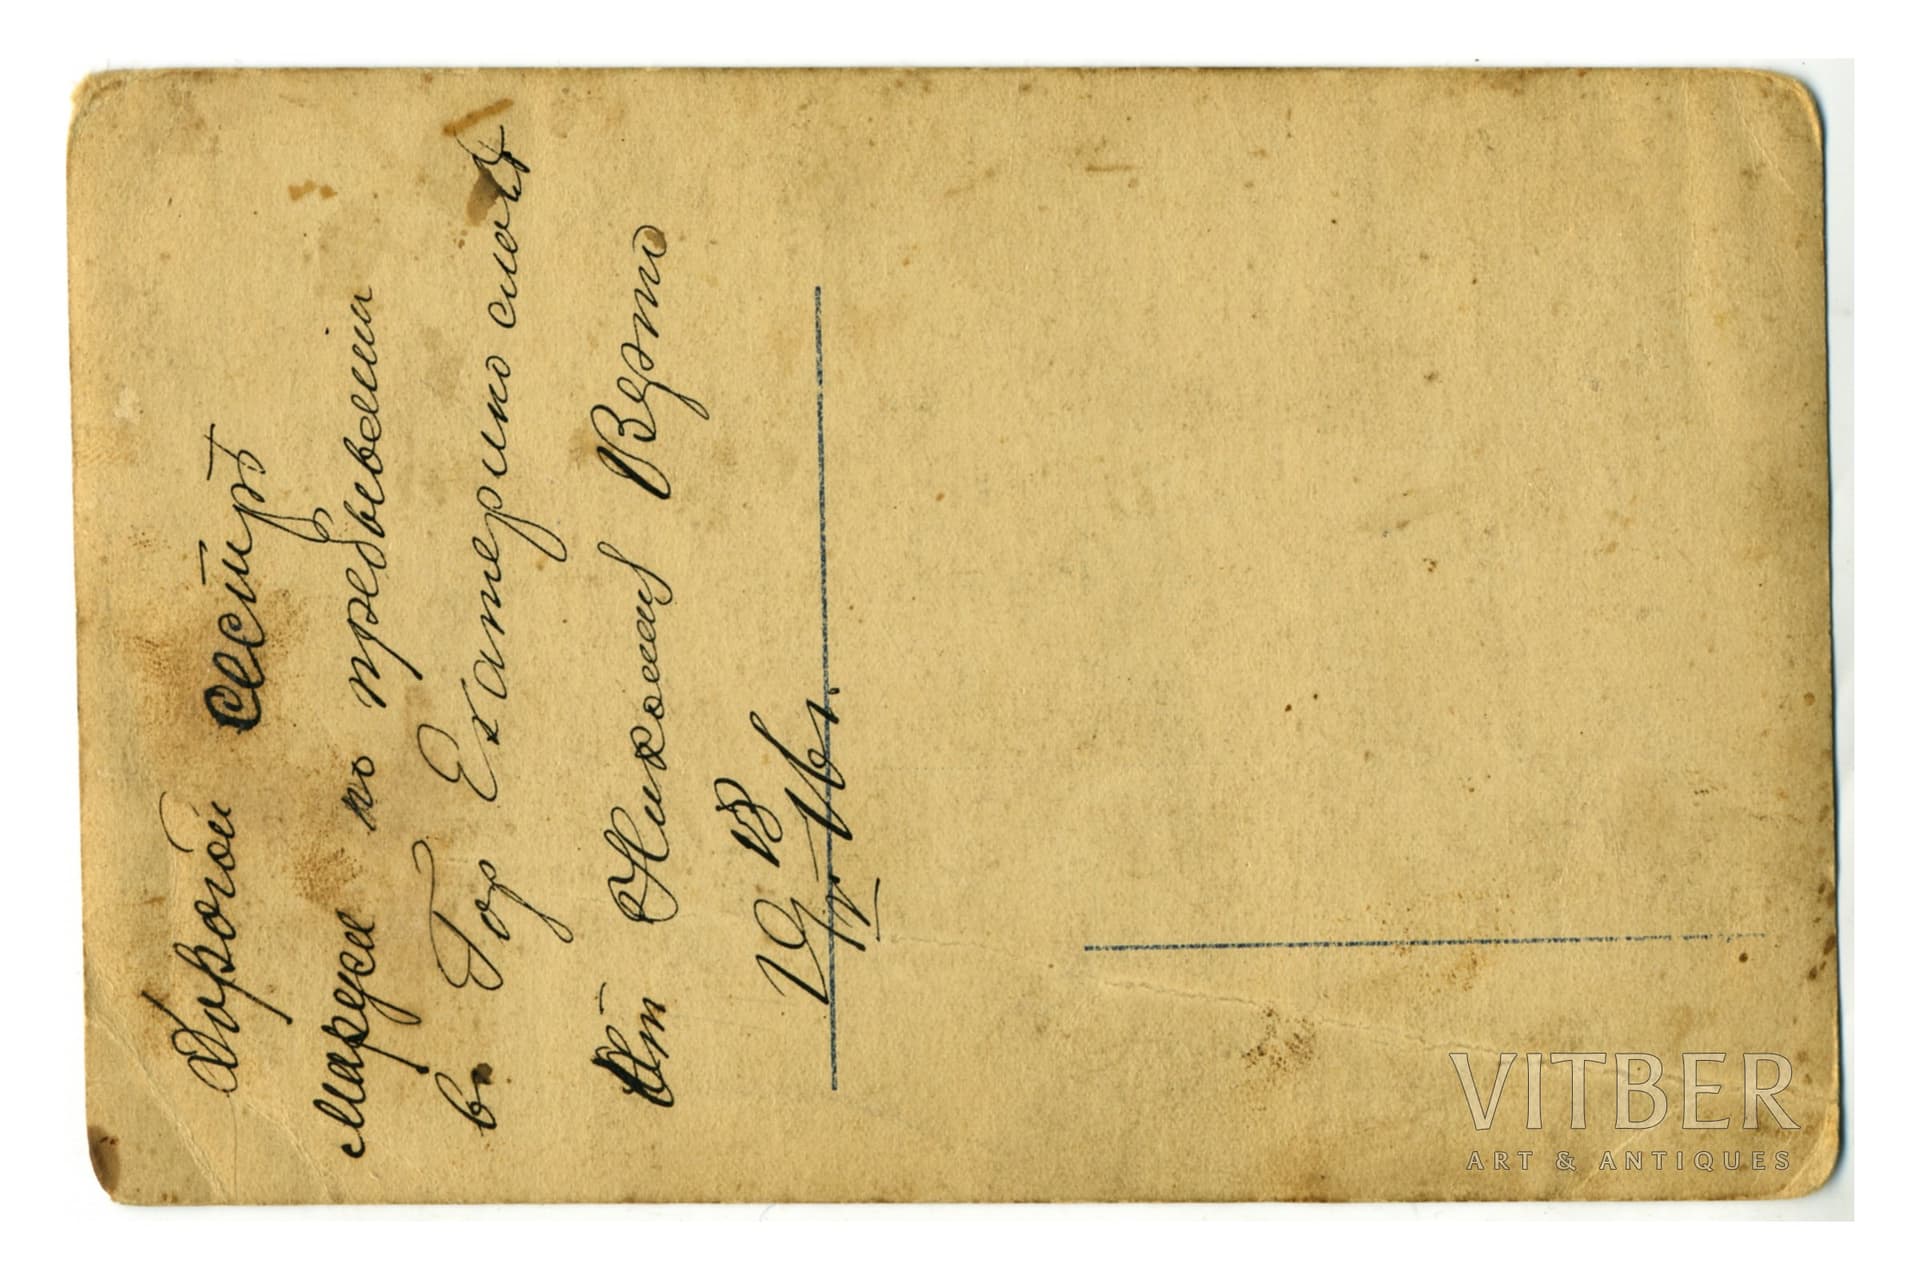 Дорогой сестрѣ
Маруси по пребыванiи
в. Гор Екатеринославѣ
От Николай
19 18/V 16 г.
VITBER
ART & ANTIQUES